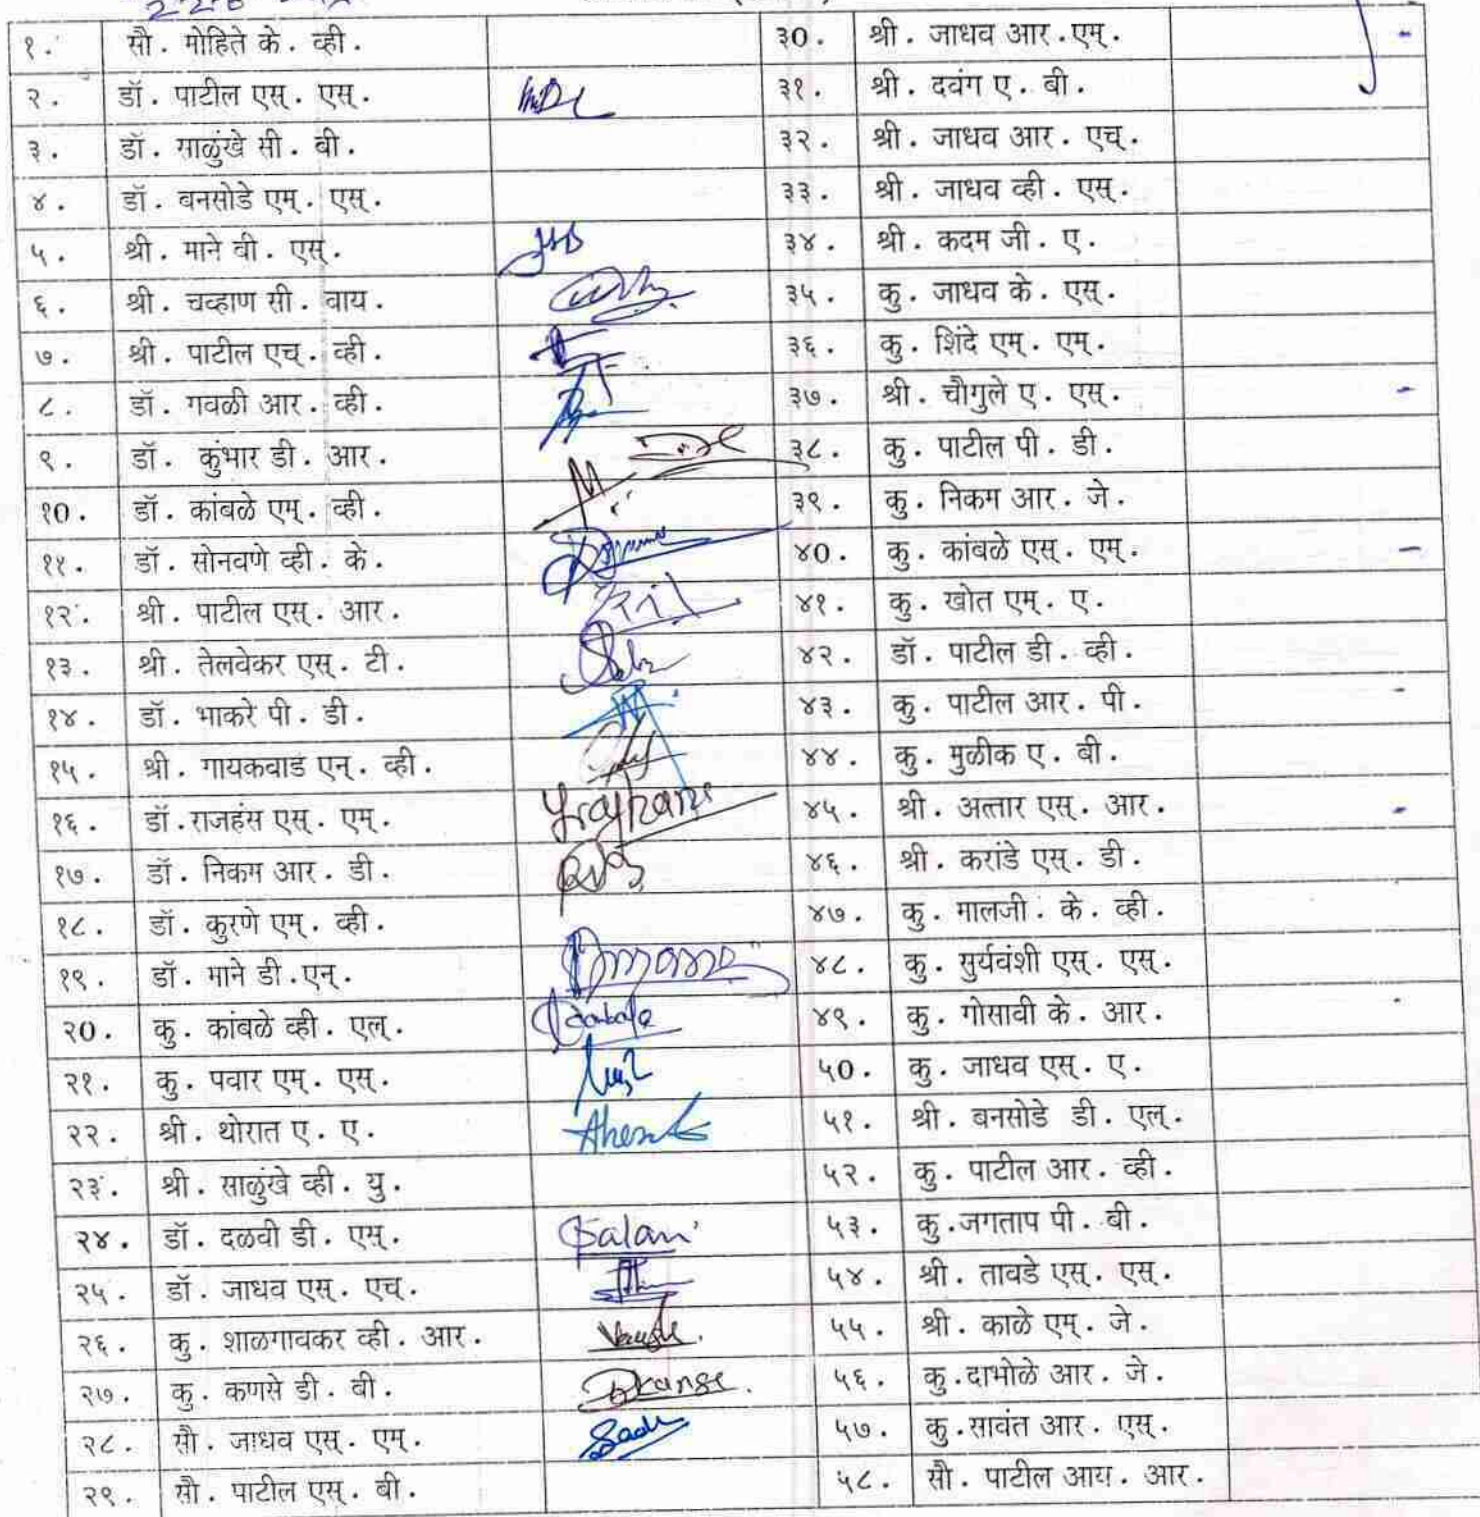 १. सौ. मोहिते के. व्ही. ३0. श्री. जाधव आर.एम्.
२. डॉ. पाटील एस्. एस्. ३१. श्री. दवंग ए. बी.
३. डॉ. साळुंखे सी. बी. ३२. श्री. जाधव आर. एच्.
४. डॉ. बनसोडे एम्. एस्. ३३. श्री. जाधव व्ही. एस्.
५. श्री. माने वी. एस्. ३४. श्री. कदम जी. ए.
६. श्री. चव्हाण सी. वाय. ३५. कु. जाधव के. एस्.
७. श्री. पाटील एच्. व्ही. ३६. कु. शिंदे एम्. एम्.
८. डॉ. गवळी आर. व्ही. ३७. श्री. चौगुले ए. एस्.
९. डॉ. कुंभार डी. आर. ३८. कु. पाटील पी. डी.
१0. डॉ. कांबळे एम्. व्ही. ३९. कु. निकम आर. जे.
११. डॉ. सोनवणे व्ही. के. ४0. कु. कांबळे एस्. एम्.
१२. श्री. पाटील एस्. आर. ४१. कु. खोत एम्. ए.
१३. श्री. तेलवेकर एस्. टी. ४२. डॉ. पाटील डी. व्ही.
१४. डॉ. भाकरे पी. डी. ४३. कु. पाटील आर. पी.
१५. श्री. गायकवाड एन्. व्ही. ४४. कु. मुळीक ए. बी.
१६. डॉ.राजहंस एस्. एम्. ४५. श्री. अत्तार एस्. आर.
१७. डॉ. निकम आर. डी. ४६. श्री. करांडे एस्. डी.
१८. डॉ. कुरणे एम्. व्ही. ४७. कु. मालजी. के. व्ही.
१९. डॉ. माने डी.एन्. ४८. कु. सुर्यवंशी एस्. एस्.
२0. कु. कांबळे व्ही. एल्. ४९. कु. गोसावी के. आर.
२१. कु. पवार एम्. एस्. ५0. कु. जाधव एस्. ए.
२२. श्री. थोरात ए. ए. ५१. श्री. बनसोडे डी. एल्.
२३. श्री. साळुंखे व्ही. यु. ५२. कु. पाटील आर. व्ही.
२४. डॉ. दळवी डी. एस्. ५३. कु.जगताप पी. बी.
२५. डॉ. जाधव एस्. एच्. ५४. श्री. तावडे एस्. एस्.
२६. कु. शाळगावकर व्ही. आर. ५५. श्री. काळे एम्. जे.
२७. कु. कणसे डी. बी. Dkanse. ५६. कु.दाभोळे आर. जे.
२८. सौ. जाधव एस्. एम्. ५७. कु.सावंत आर. एस्.
२९. सौ. पाटील एस्. बी. ५८. सौ. पाटील आय. आर.